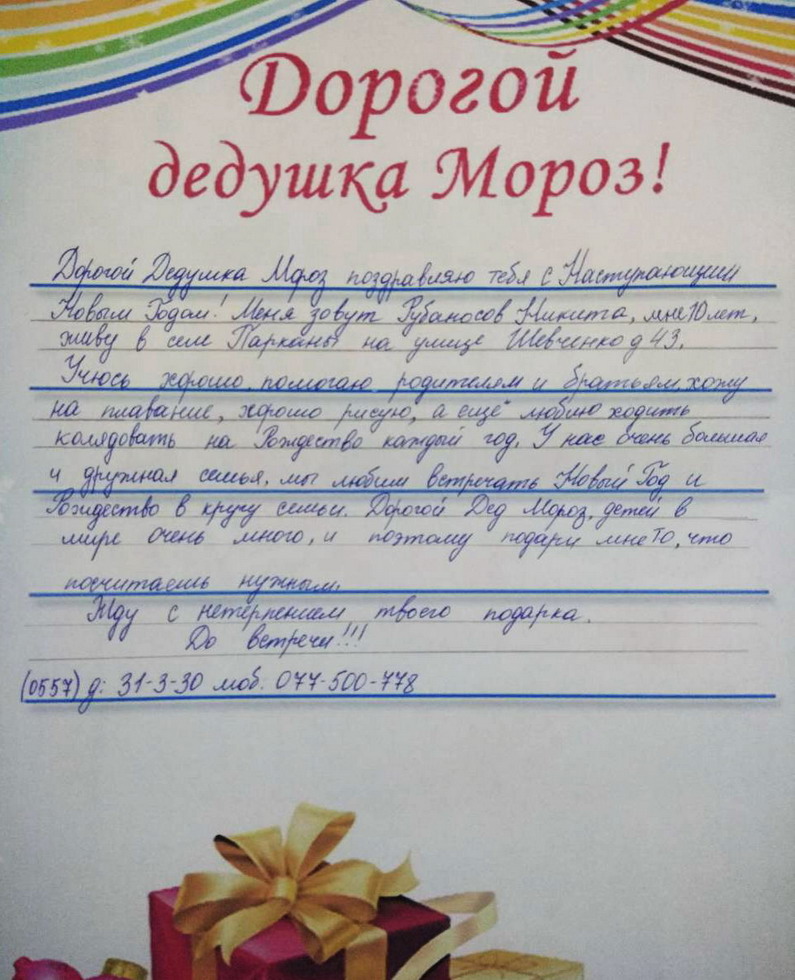 Дорогой
дедушка Мороз!
Дорогой Дедушка Мороз поздравляю тебя с Наступающим
Новым Годом! Меня зовут Рубаносов Никита, мне 10 лет,
живу в селе Парканы на улице Шевченко д 43.
Учюсь хорошо, помогаю родителям и братьям, хожу
на плавание, хорошо рисую, а ещё люблю ходить
колядовать на Рождество каждый год. У нас очень большая
и дружная семья, мы любим встречать Новый Год и
Рождество в кругу семьи. Дорогой Дед Мороз, детей в
мире очень много, и поэтому подари мне то, что
посчитаешь нужным.
Жду с нетерпением твоего подарка.
До встречи!!!
(0557) д: 31-3-30 моб. 077-500-778